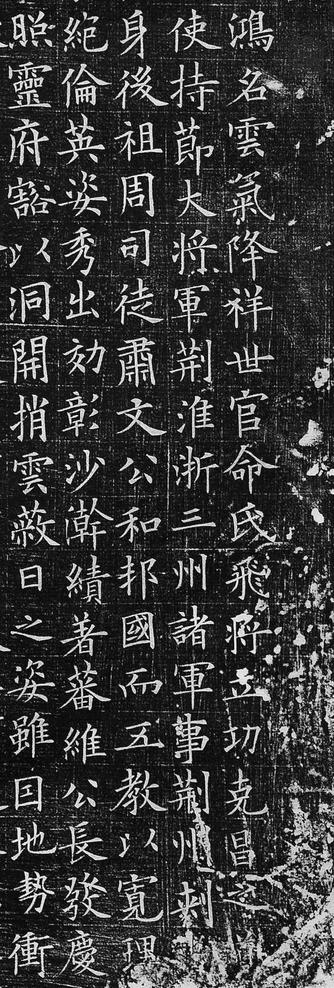 鴻名雲氣降祥世官命氏飛將立功克昌之
使持莭大将軍荆淮淅三州諸軍事荆州刺
身後祖周司徒肅文公和邦國而五教以寛理
絶倫英姿秀出効彰沙漧績著蕃維公長發慶
照靈府豁以洞開捎雲蔽日之姿雖因地勢衝